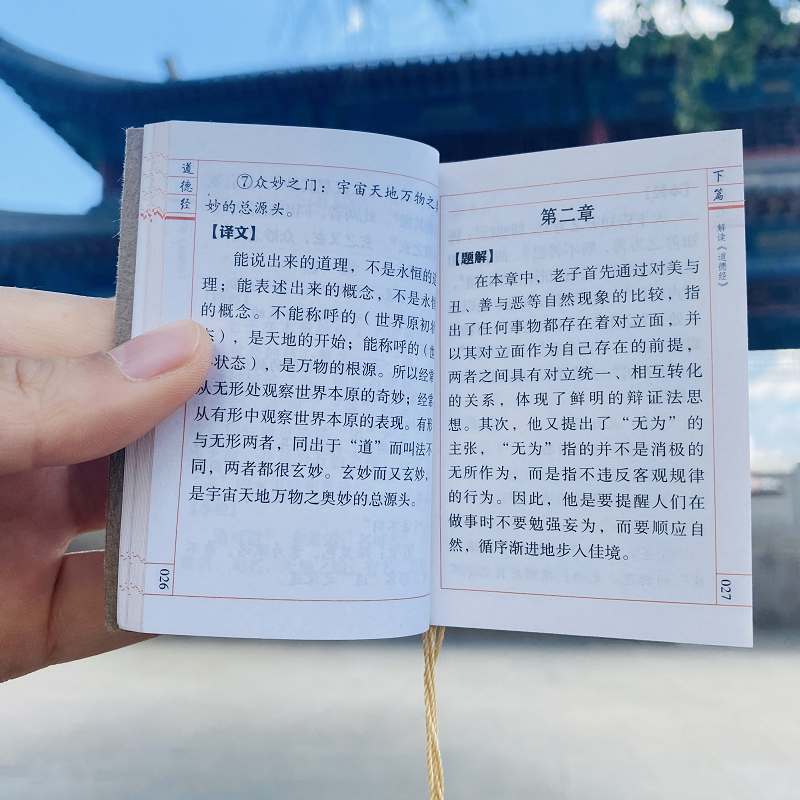 道德经
⑦众妙之门：宇宙天地万物之奥
妙的总源头。
【译文】
能说出来的道理，不是永恒的道
理；能表述出来的概念，不是永恒
的概念。不能称呼的（世界原初状
态），是天地的开始；能称呼的（世
状态），是万物的根源。所以经常
从无形处观察世界本原的奇妙；经常
从有形中观察世界本原的表现。有形
与无形两者，同出于“道”而叫法不
同，两者都很玄妙。玄妙而又玄妙，
是宇宙天地万物之奥妙的总源头。
026
下篇
解读《道德经》
第二章
【题解】
在本章中，老子首先通过对美与
丑、善与恶等自然现象的比较，指
出了任何事物都存在着对立面，并
以其对立面作为自己存在的前提，
两者之间具有对立统一、相互转化
的关系，体现了鲜明的辩证法思
想。其次，他又提出了“无为”的
主张，“无为”指的并不是消极的
无所作为，而是指不违反客观规律
的行为。因此，他是要提醒人们在
做事时不要勉强妄为，而要顺应自
然，循序渐进地步入佳境。
027